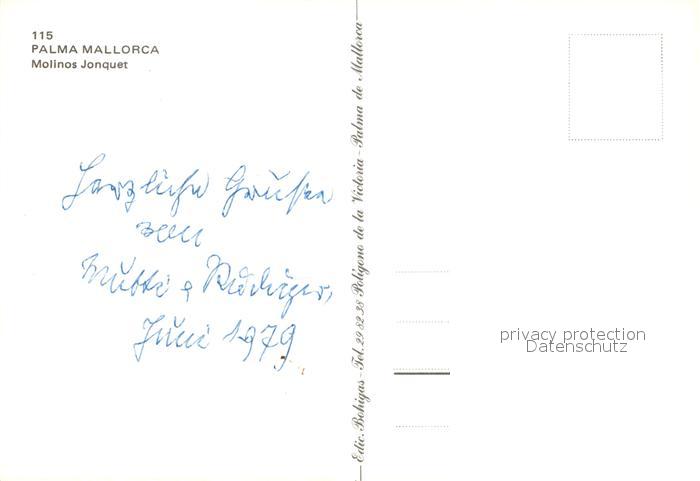 115
PALMA MALLORCA
Molinos Jonquet
Herzliche Grüße
von
Mutti & Rüdiger,
Juni 1979
Edic. Bohigas - Tel. 29 82 38 Polígono de la Victoria - Palma de Mallorca
privacy protection
Datenschutz